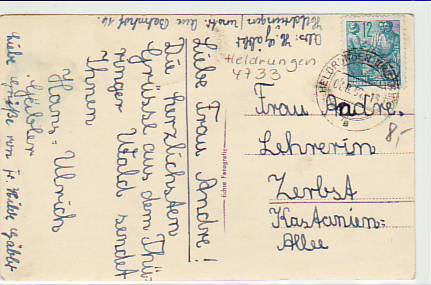 Abs: H. Gäbler
Heldrungen Unstr. Am Bahnhof 10.
Heldrungen
4733
Liebe Frau Andre!
Die herzlichsten
Grüsse aus dem Thü-
ringer Wald sendet
Ihnen
Hans-Ulrich
Gäbler.
Liebe Grüße von Fr. Hilde Gäbler
Echte Fotografie
12
HELDRUNGEN
Frau Andre.
Lehrerin
Zerbst
Kastanien=
Allee
8,-